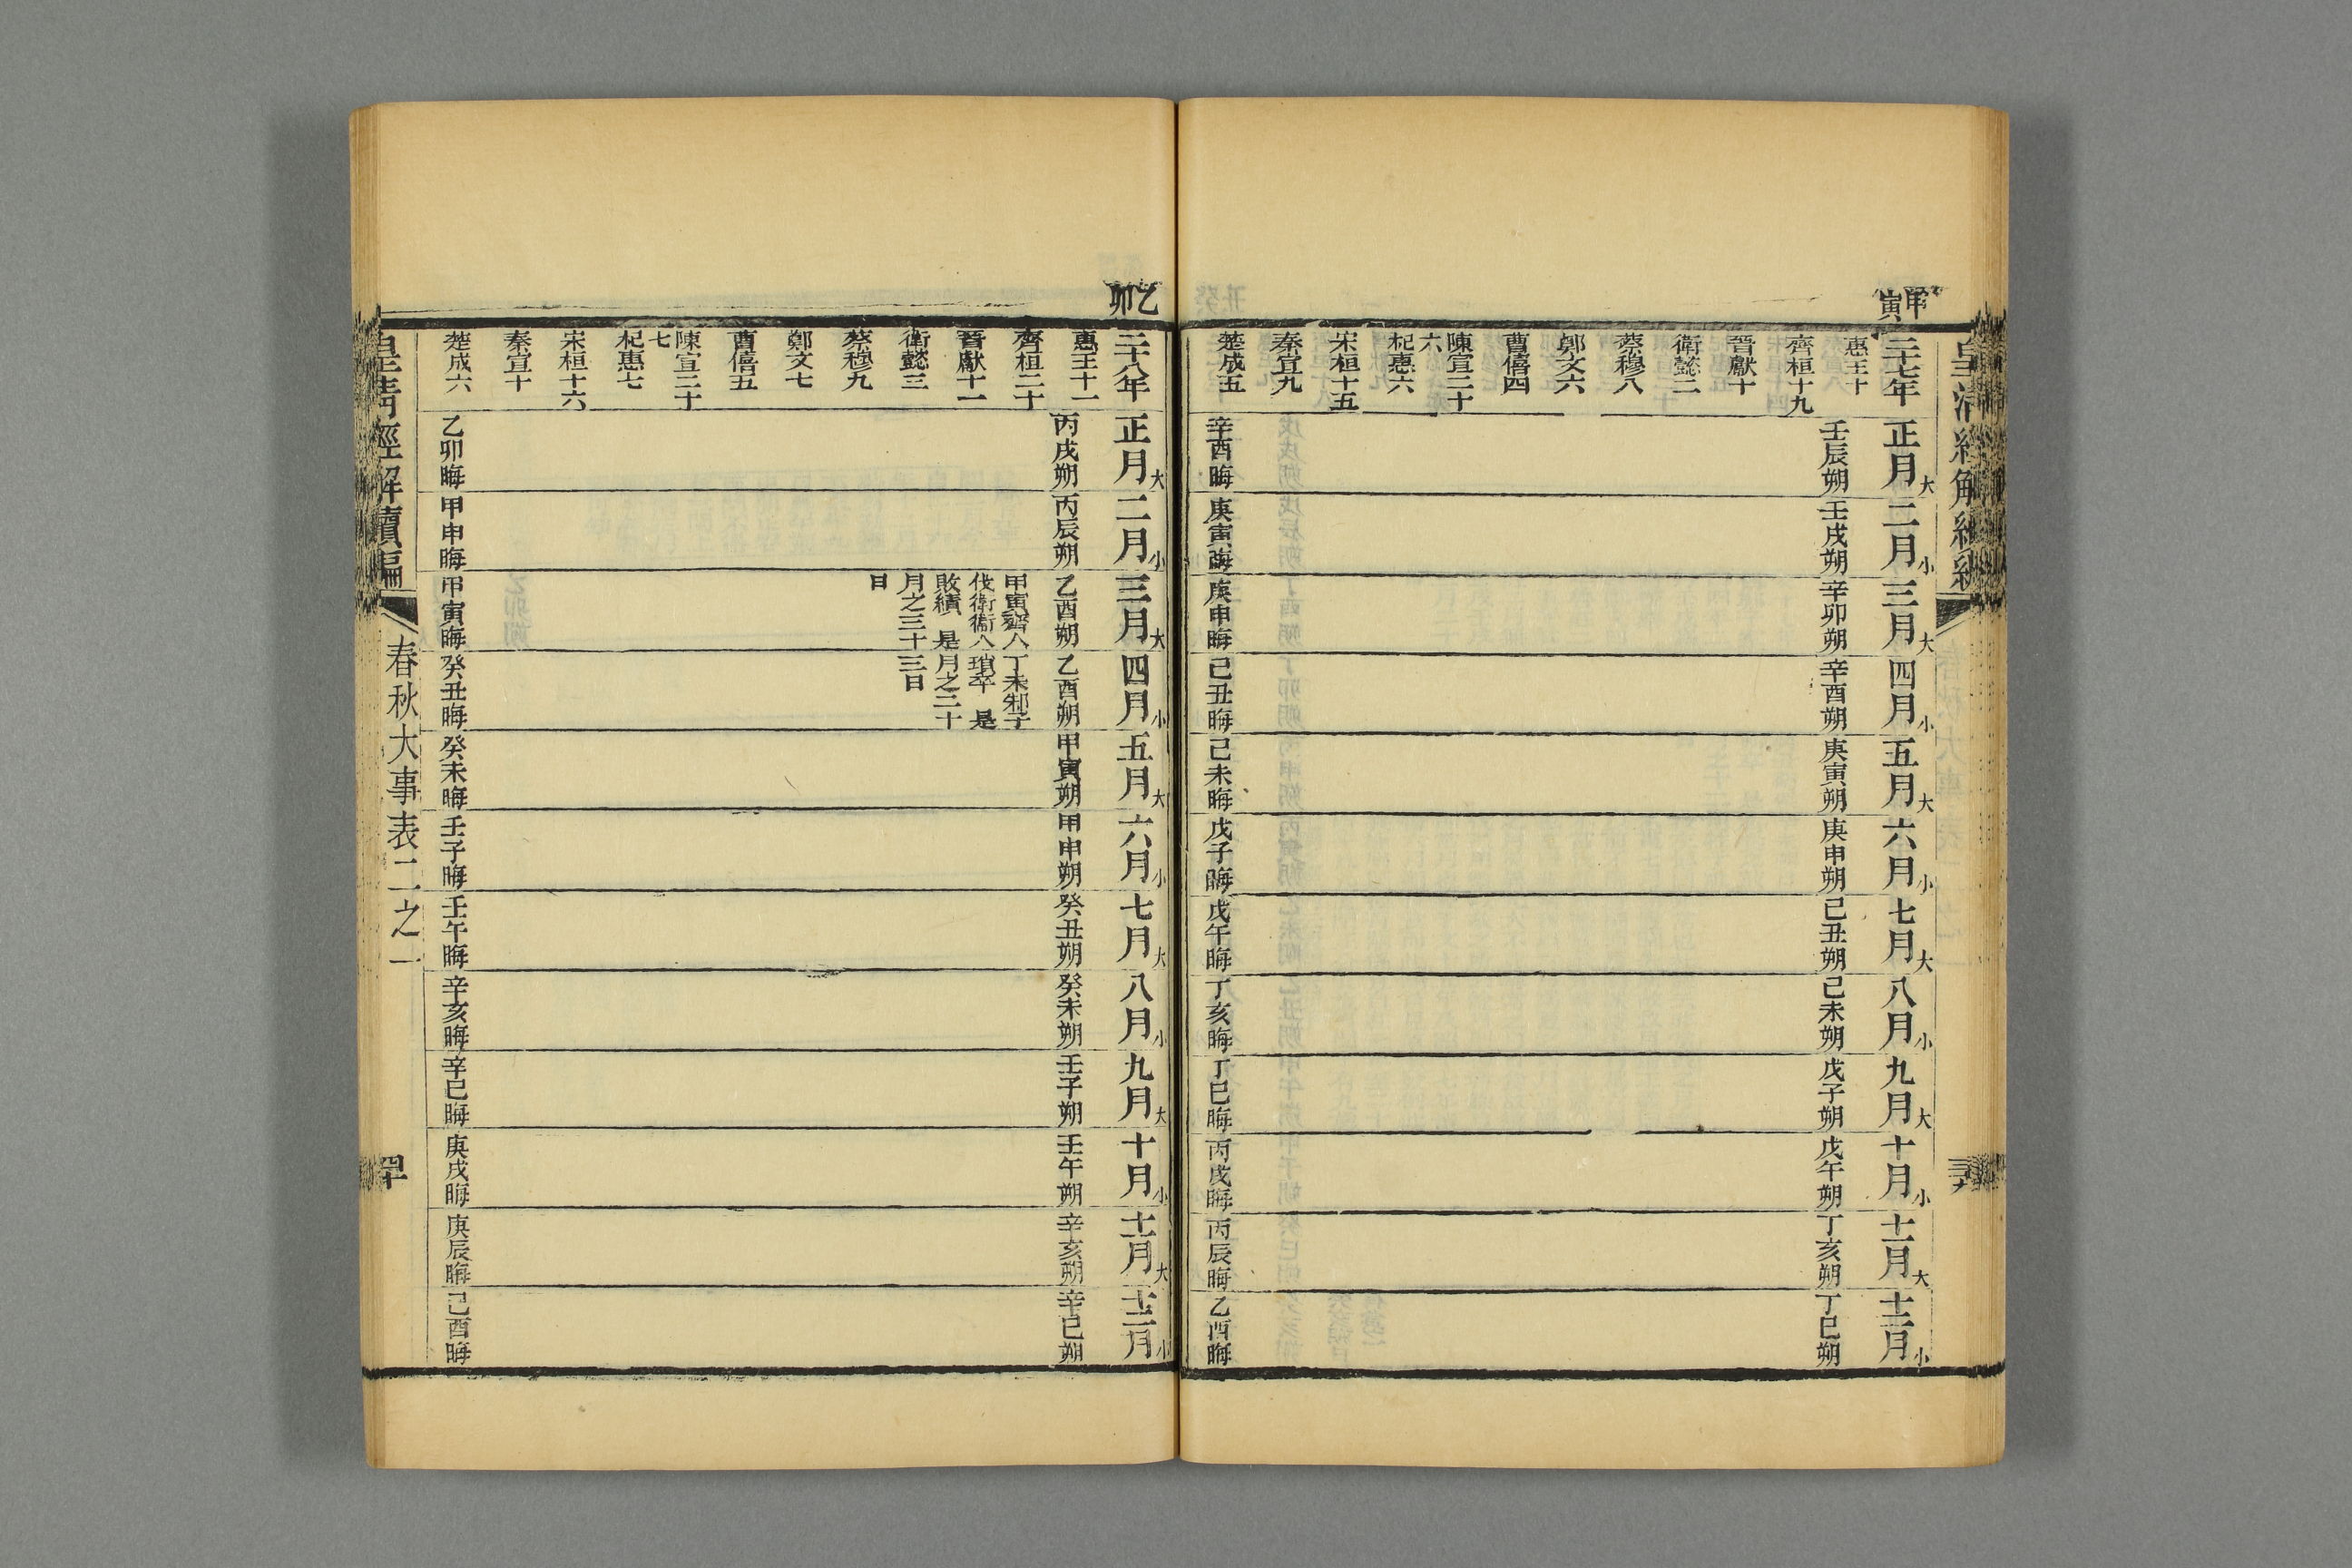 甲寅
二十七年
惠王十
齊桓十九
晉獻十
衛懿二
蔡穆八
鄭文六
曹僖四
陳宣二十
六
杞惠六
宋桓十五
秦宣九
楚成五
正月大
壬辰朔
辛酉晦
二月小
壬戌朔
庚寅晦
三月大
辛卯朔
庚申晦
四月小
辛酉朔
己丑晦
五月大
庚寅朔
己未晦
六月小
庚申朔
戊子晦
七月大
己丑朔
戊午晦
八月小
己未朔
丁亥晦
九月大
戊子朔
丁巳晦
十月小
戊午朔
丙戌晦
十一月大
丁亥朔
丙辰晦
十二月小
丁巳朔
乙酉晦
乙卯
二十八年
惠王十一
齊桓二十
晉獻十一
衛懿三
蔡穆九
鄭文七
曹僖五
陳宣二十
七
杞惠七
宋桓十六
秦宣十
楚成六
正月大
丙戌朔
乙卯晦
二月小
丙辰朔
甲申晦
三月大
乙酉朔
甲寅齊人
伐衛衛人
敗績 是
月之三十
日
甲寅晦
四月小
乙酉朔
丁未邾子
瑣卒 是
月之二十
三日
癸丑晦
五月大
甲寅朔
癸未晦
六月小
甲申朔
壬子晦
七月大
癸丑朔
壬午晦
八月小
癸未朔
辛亥晦
九月大
壬子朔
辛巳晦
十月小
壬午朔
庚戌晦
十一月大
辛亥朔
庚辰晦
十二月小
辛巳朔
己酉晦
皇清經解續編
春秋大事表二之一
四十